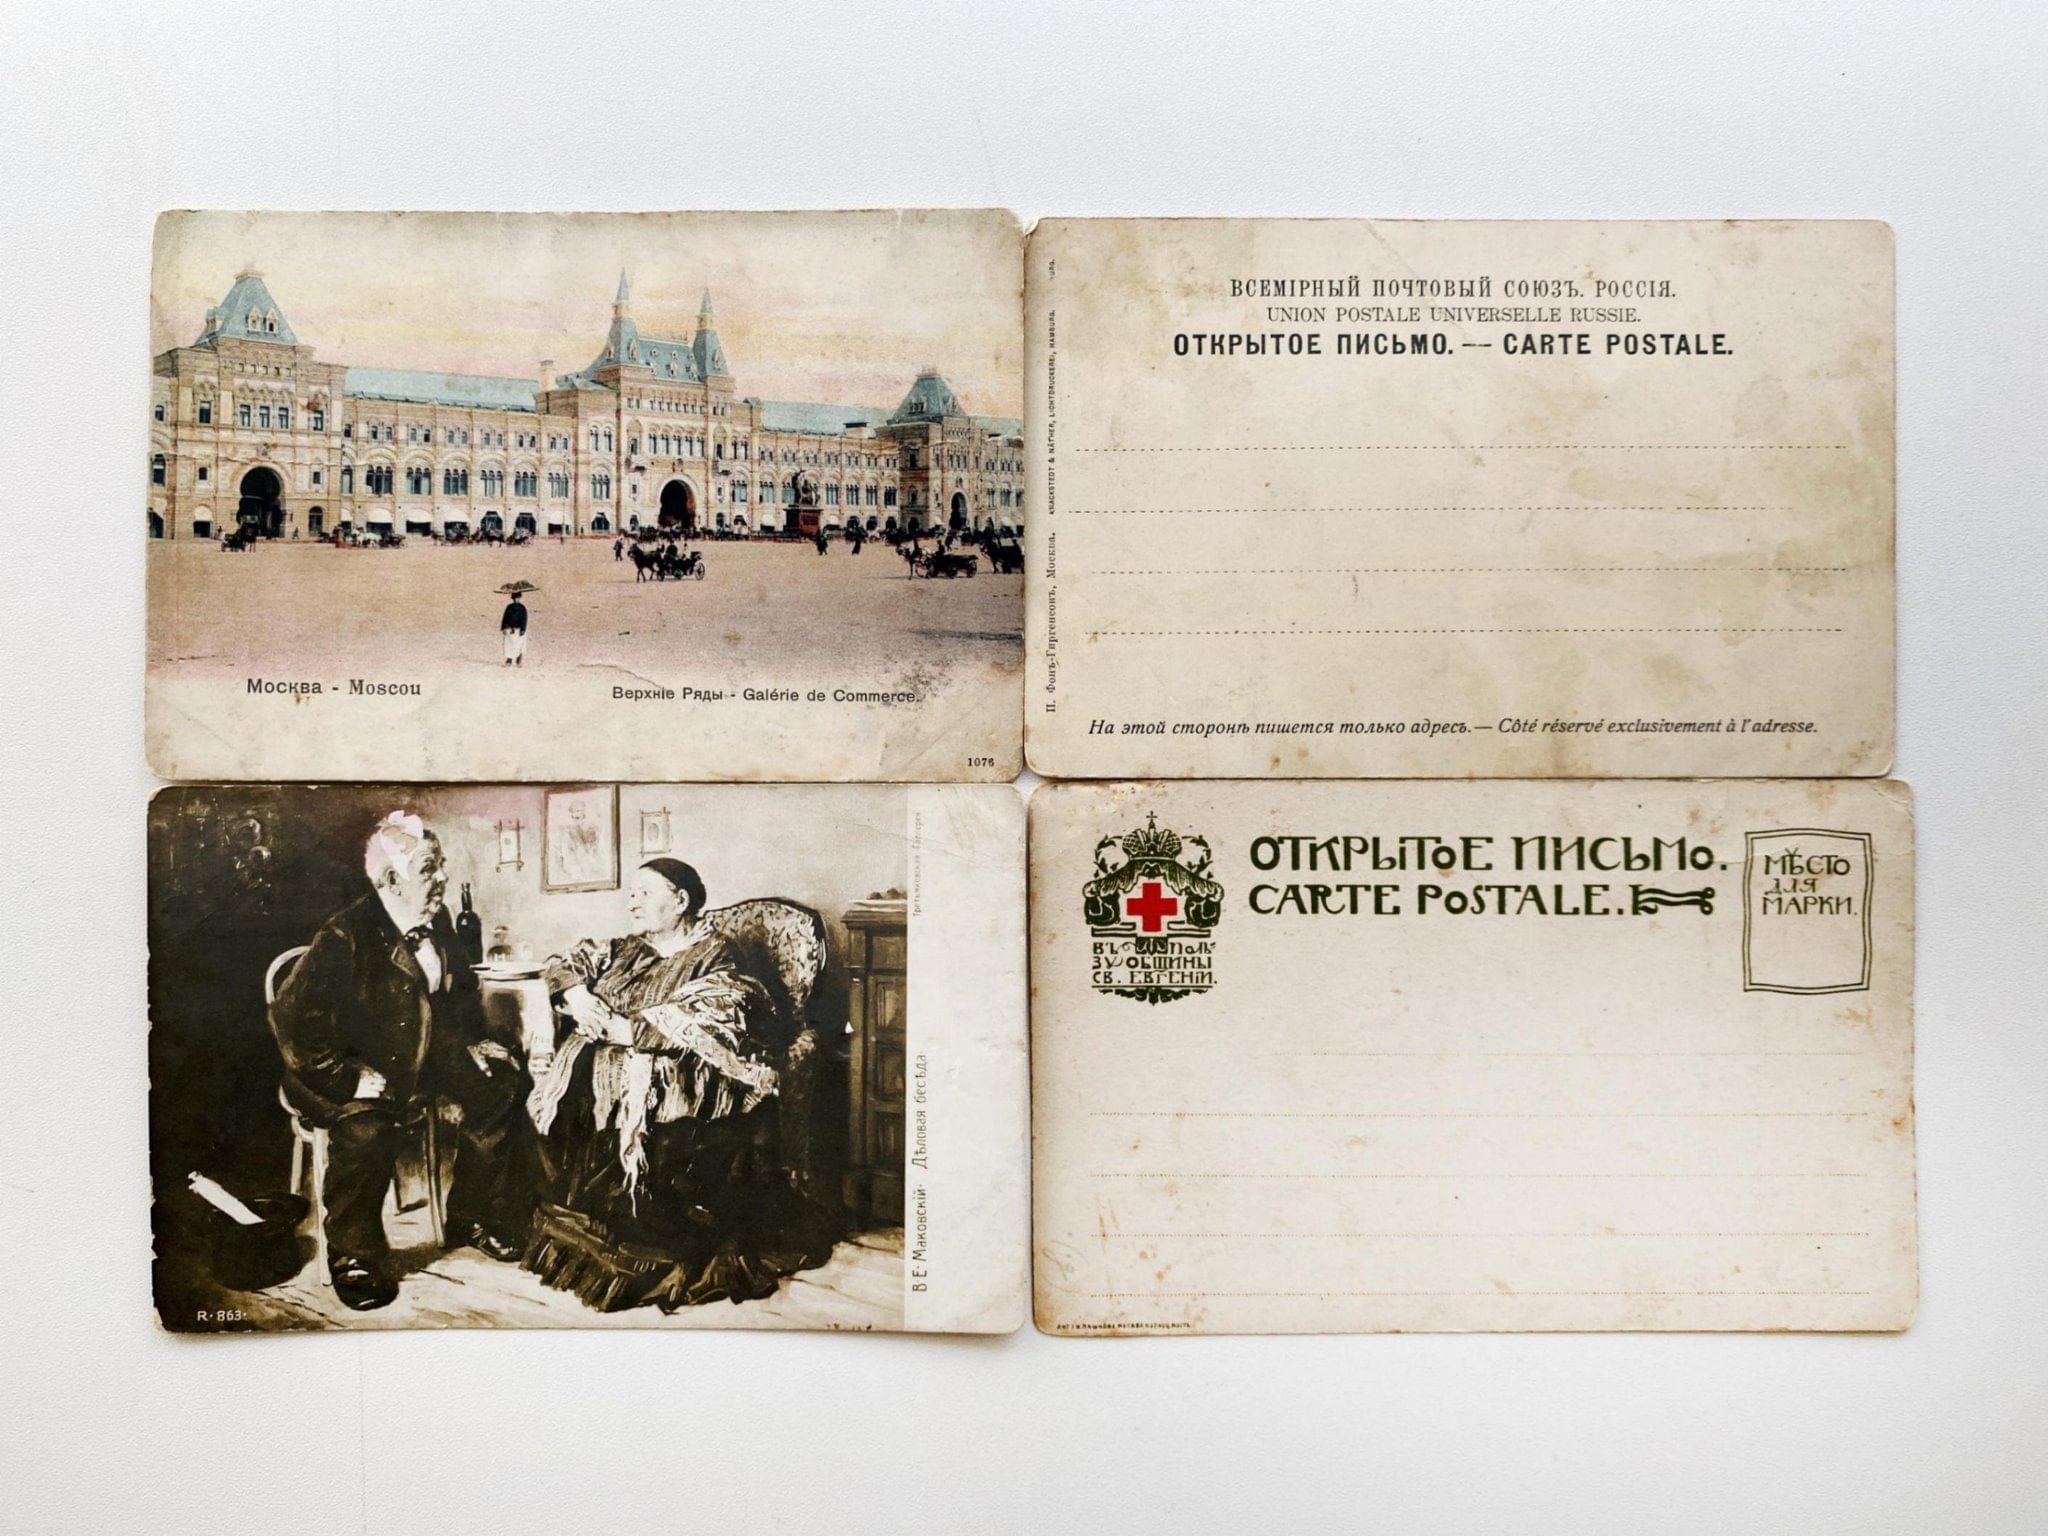 Москва - Moscou
Верхніе Ряды - Galérie de Commerce.
1076
ВСЕМІРНЫЙ ПОЧТОВЫЙ СОЮЗЪ. РОССІЯ.
UNION POSTALE UNIVERSELLE RUSSIE.
ОТКРЫТОЕ ПИСЬМО. — CARTE POSTALE.
На этой сторонѣ пишется только адресъ. — Côté réservé exclusivement à l'adresse.
П. Фонъ-Гиргенсонъ, Москва.
KNACKSTEDT & NÄTHER, LICHTDRUCKEREI, HAMBURG.
Третьяковская Галлерея
В·Е· Маковскій· Дѣловая бесѣда·
R·863·
ОТКРЫТОЕ ПИСЬМО.
CARTE POSTALE.
МѢСТО
ДЛЯ
МАРКИ.
ВЪ ПОЛЬ-
ЗУ ОБЩИНЫ
СВ. ЕВГЕНІИ.